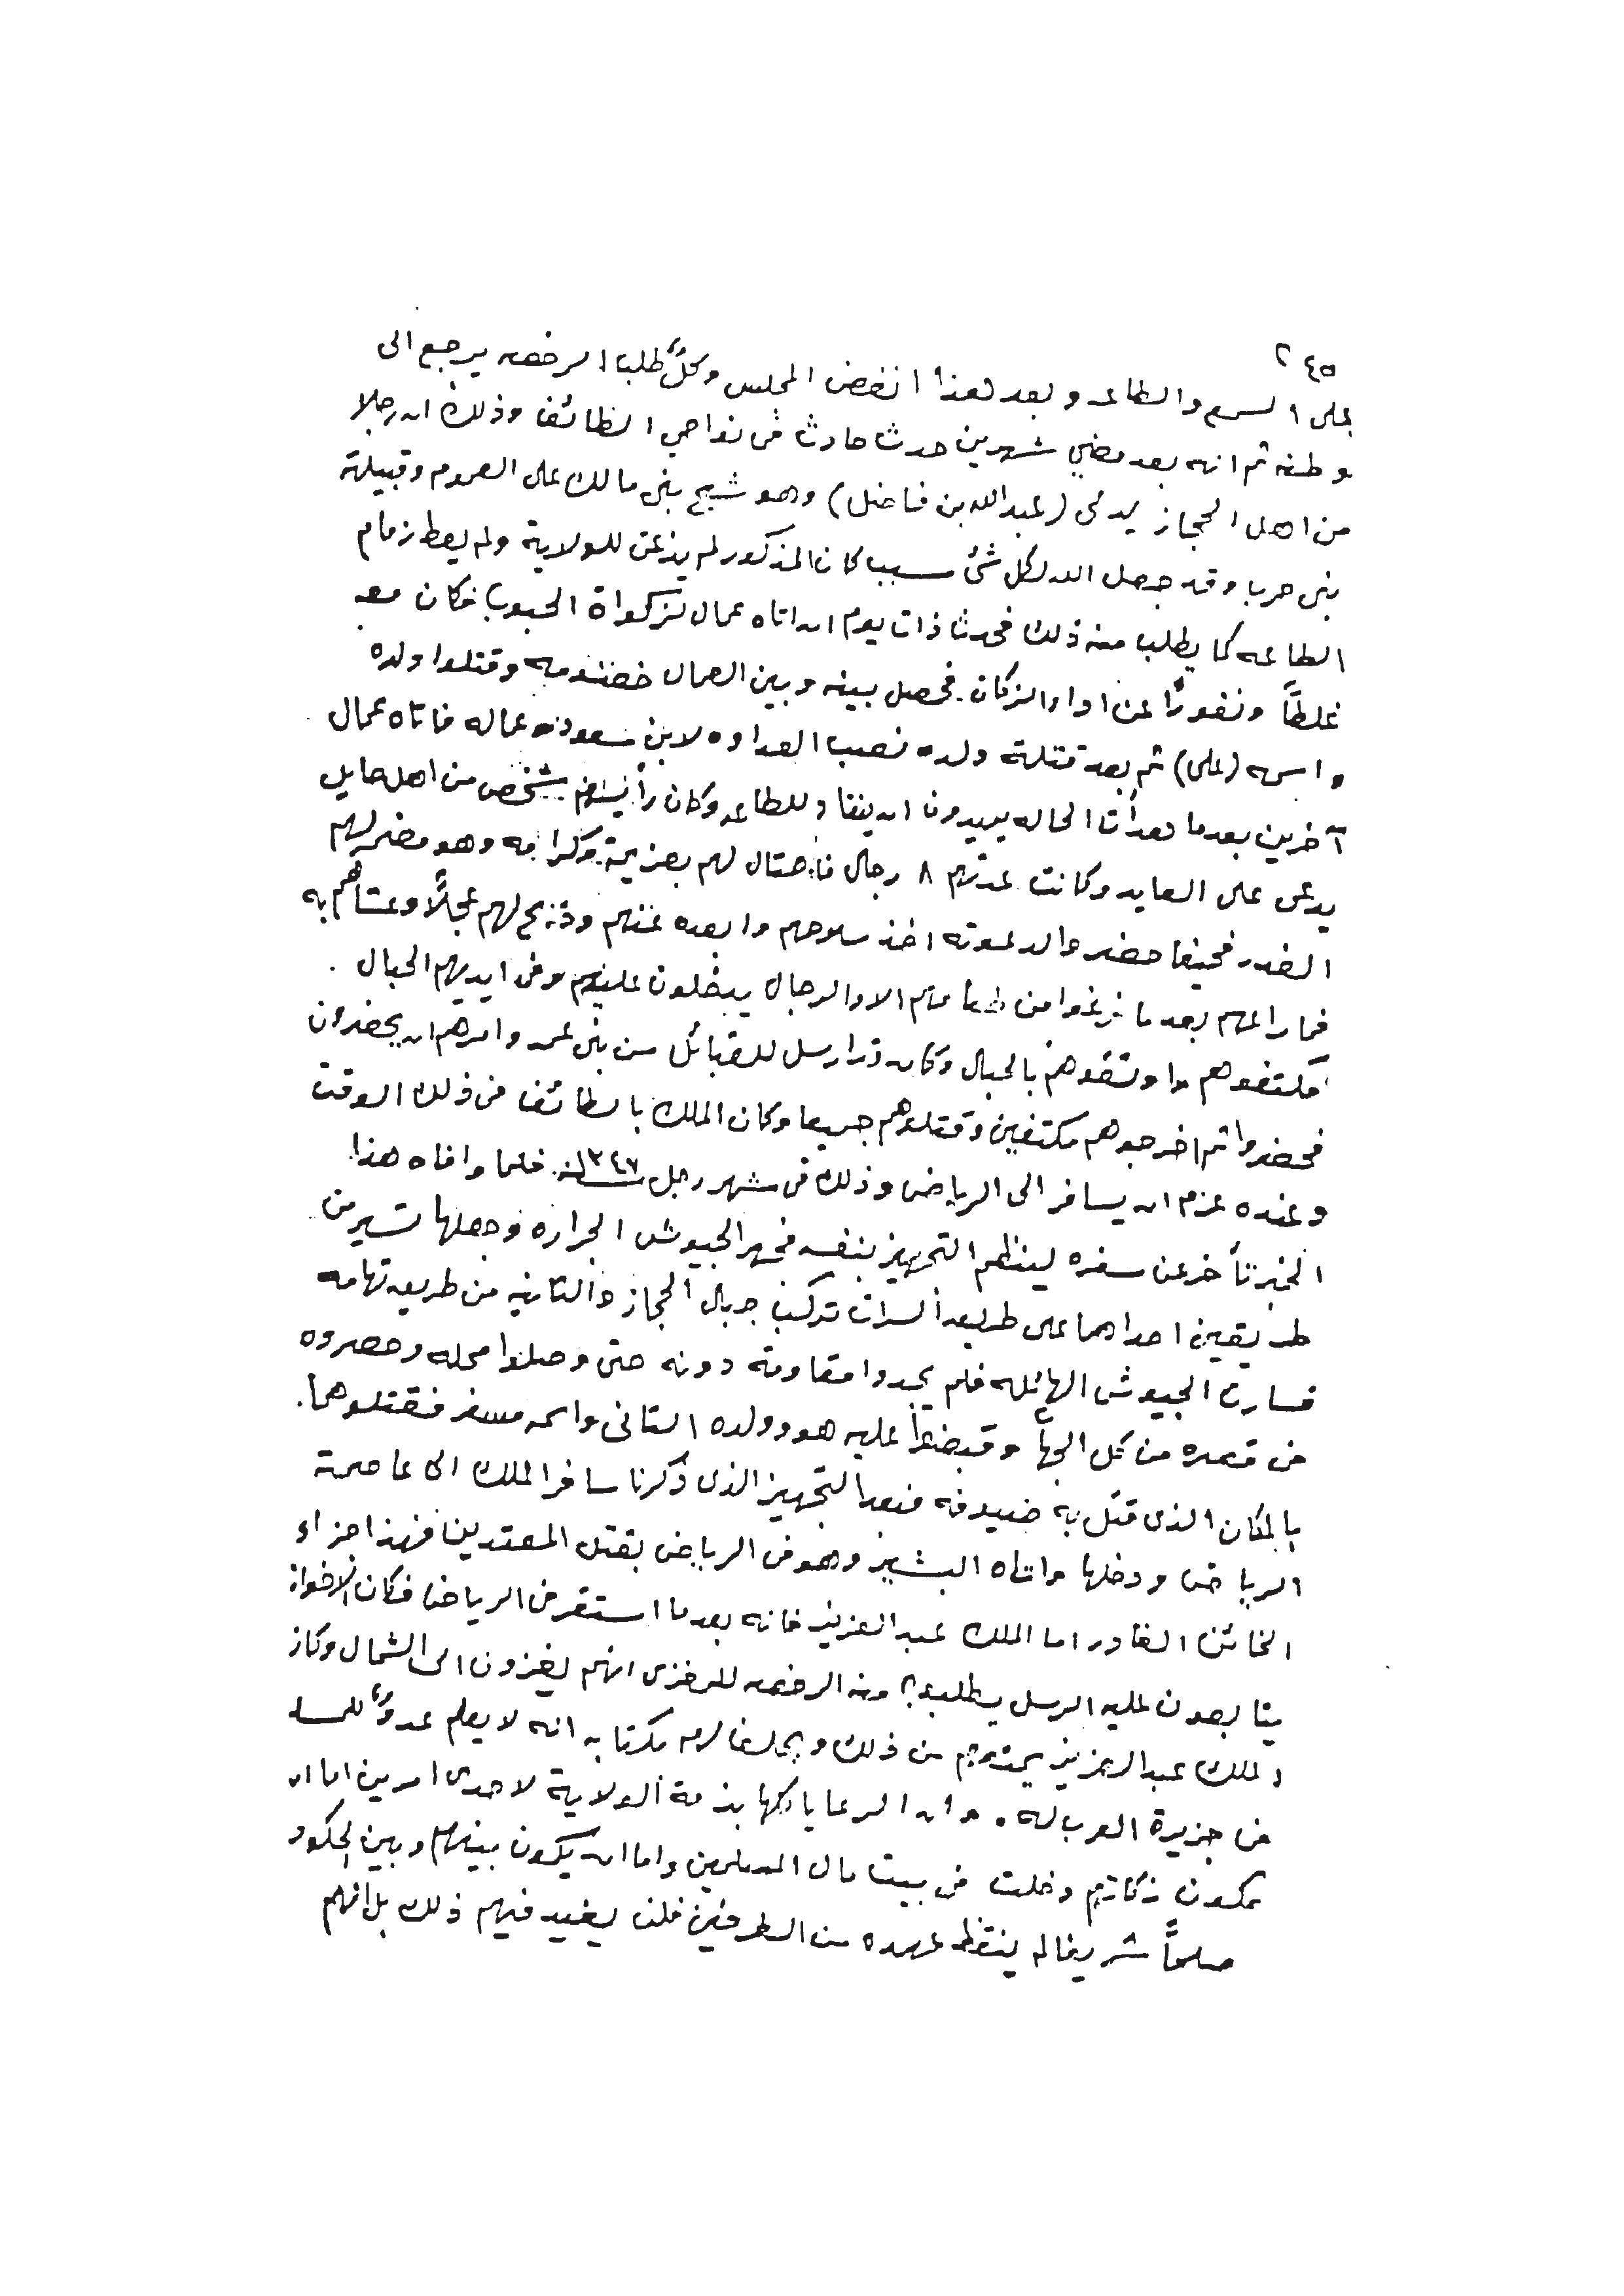 ٢٤٥
على السمع والطاعه وبعد هذا انفض المجلس وكلٌ طلب الرخصه يرجع الى
وطنه ثم انه بعد مضي شهرين حدث حادث في نواحي الطائف وذلك ان رجلا
من اهل الحجاز يدعى (عبدالله بن فاضل) وهو شيخ بني مالك على العموم وقبيلته
بني حرب وقد جعل الله لكل شئ سبب كان المذكور لم يذعن للولاية ولم يعط زمام
الطاعه كما يطلب منه ذلك فحدث ذات يوم ان اتاه عمال لزكواة الحبوب فكان معه
غلظاً ونفوراً عن اداء الزكات فحصل بينه وبين العمال خصومه وقتلوا ولده
واسمه (علي) ثم بعد قتلة ولده نصب العداوه لابن سعود عماله فاتاه عمال
آخرين بعدما هدأت الحاله يريدون ان ينقاد للطاعه وكان رأيسهم شخص من اهل حايل
يدعى على العايد وكانت عدتهم ٨ رجال فاحتال لهم بعزيمة وكرامه وهو مضمر لهم
الغدر فحينما حضروا لدعوته اخذ سلاحهم وابعده عنهم وذبح لهم عجلاً وعشاهم به
فما راعهم بعد ما فرغوا من طعامهم الا والرجال يدخلون عليهم وفى ايديهم الحبال
فكتفوهم واوثقوهم بالحبال وكان قد ارسل للقبائل من بني عمه وامرهم ان يحضرون
فحضروا ثم اخرجوهم مكتفين وقتلوهم جميعا وكان الملك بالطائف في ذلك الوقت
وعنده عزم ان يسافر الى الرياض وذلك في شهر رجب سنة ١٣٤٧ فلما وافاه هذا
الخبر تأخر عن سفره لينظم التجهيز بنفسه فجهز الجيوش الجراره وجعلها تسير من
طريقين احداهما على طريق السرات تركب جبال الحجاز والثانيه من طريق تهامه
فسارت الجيوش الهائله فلم يجدوا مقاومة دونه حتى وصلوا محله وحصروه
في قصره من كل الجهات وقبضوا عليه هو وولده الثانى واسمه مسفر فقتلوهما.
بالمكان الذى قتل به ضيوفه وبعد التجهيز الذى ذكرنا سافر الملك الى عاصمة
الرياض ودخلها واتاه البشير وهو في الرياض بقتل المعتدين فهذا جزاء
الخائن الغادر اما الملك عبدالعزيز فانه بعدما استقر في الرياض فكان الاخوان
يتابعون عليه الرسل يطلبون منه الرخصه للغزى انهم يغزون الى الشمال وكان
الملك عبدالعزيز يحذرهم من ذلك ويحلف لهم بكتابه انه لا يعلم عدوٌ للمسلـ
في جزيرة العرب له. وان الرعايا كلها بذمة الولاية لاحدى امرين اما ان
تكون زكاتهم دخلت في بيت مال المسلمين واما ان يكون بينهم وبين الحكود
صلحاً شريفا لم ينتقض عهده من الطرفين فلن يفيد فيهم ذلك بل انهم